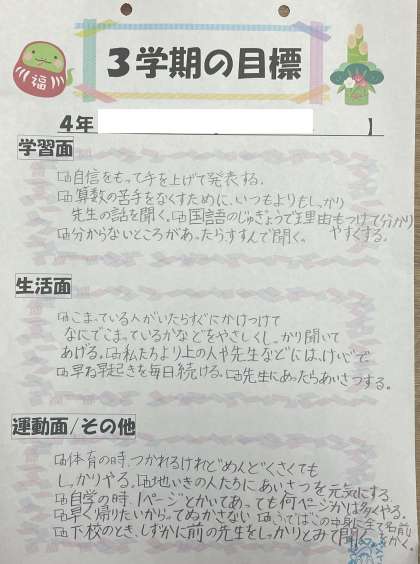 福
3学期の目標
4年 】
学習面
自信をもって手を上げて発表する。
算数の苦手をなくすために、いつもよりもしっかり
先生の話を聞く。国語のじゅぎょうで理由もつけて分かり
やすくする。
分からないところがあったらすすんで聞く。
生活面
こまっている人がいたらすぐにかけつけて
なにでこまっているかなどをやさしくしっかり聞いて
あげる。私たちより上の人や先生などには、けいごで
早ね早起きを毎日続ける。先生にあったらあいさつする。
運動面/その他
体育の時、つかれるけれどめんどくさくても
しっかりやる。地いきの人たちにあいさつを元気にする。
自学の時、1ページとかいてあっても何ページかは多くやる。
早く帰りたいからってぬかさない ふでばこの中身に全て名前
をかく。
下校のとき、しずかに前の先生をしっかりとみて聞く